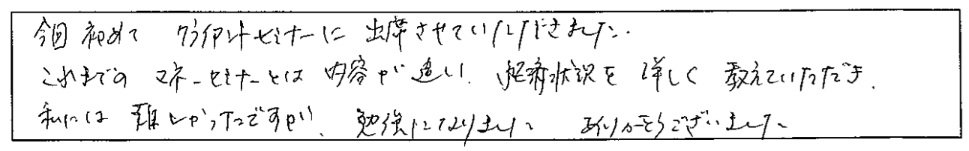 今回初めて クライアントセミナーに 出席させていただきました.
これまでの マネーセミナーとは 内容が違い、経済状況を 詳しく 教えていただき、
私には 難しかったですが、勉強になりました ありがとうございました